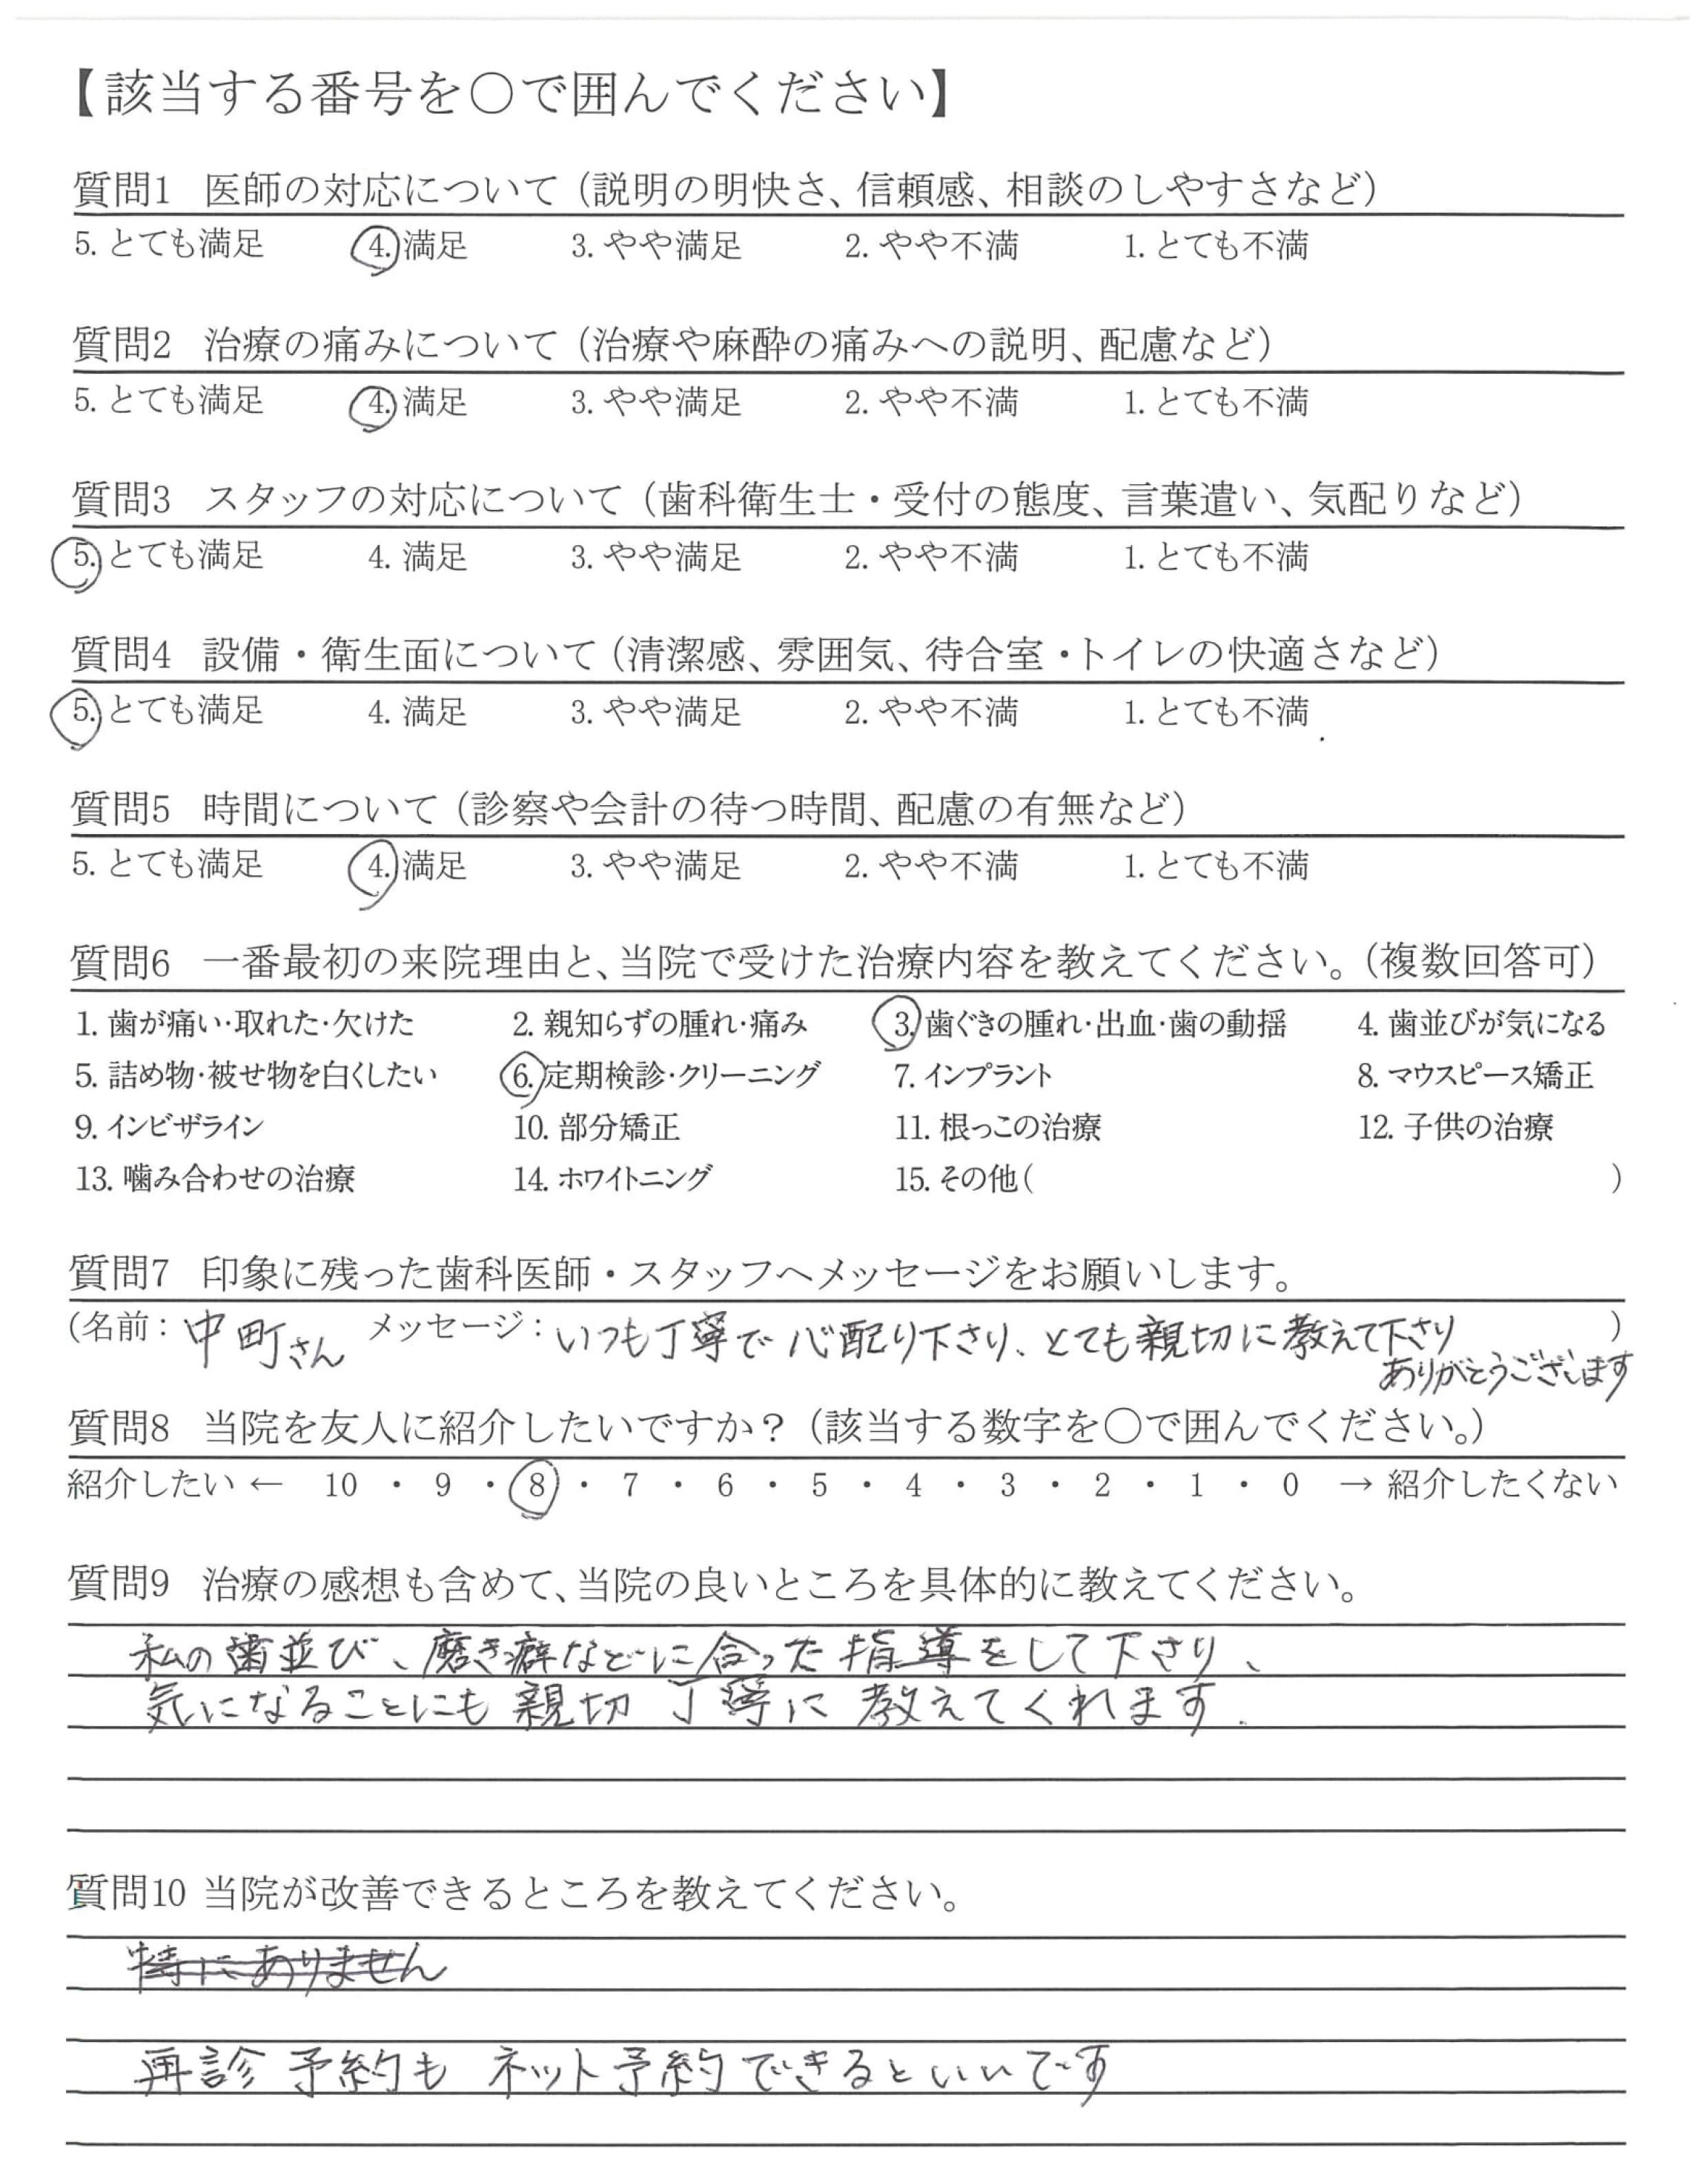 【該当する番号を○で囲んでください】
質問1 医師の対応について（説明の明快さ、信頼感、相談のしやすさなど）
5. とても満足 4. 満足 3. やや満足 2. やや不満 1. とても不満
質問2 治療の痛みについて（治療や麻酔の痛みへの説明、配慮など）
5. とても満足 4. 満足 3. やや満足 2. やや不満 1. とても不満
質問3 スタッフの対応について（歯科衛生士・受付の態度、言葉遣い、気配りなど）
5. とても満足 4. 満足 3. やや満足 2. やや不満 1. とても不満
質問4 設備・衛生面について（清潔感、雰囲気、待合室・トイレの快適さなど）
5. とても満足 4. 満足 3. やや満足 2. やや不満 1. とても不満
質問5 時間について（診察や会計の待つ時間、配慮の有無など）
5. とても満足 4. 満足 3. やや満足 2. やや不満 1. とても不満
質問6 一番最初の来院理由と、当院で受けた治療内容を教えてください。（複数回答可）
1. 歯が痛い・取れた・欠けた 2. 親知らずの腫れ・痛み 3. 歯ぐきの腫れ・出血・歯の動揺 4. 歯並びが気になる
5. 詰め物・被せ物を白くしたい 6. 定期検診・クリーニング 7. インプラント 8. マウスピース矯正
9. インビザライン 10. 部分矯正 11. 根っこの治療 12. 子供の治療
13. 噛み合わせの治療 14. ホワイトニング 15. その他（ ）
質問7 印象に残った歯科医師・スタッフへメッセージをお願いします。
（名前：中町さん メッセージ：いつも丁寧で心配り下さり、とても親切に教えて下さり ）
ありがとうございます
質問8 当院を友人に紹介したいですか？（該当する数字を○で囲んでください。）
紹介したい ← 10 ・ 9 ・ 8 ・ 7 ・ 6 ・ 5 ・ 4 ・ 3 ・ 2 ・ 1 ・ 0 → 紹介したくない
質問9 治療の感想も含めて、当院の良いところを具体的に教えてください。
私の歯並び、磨き癖などに合った指導をして下さり、
気になることにも親切 丁寧に教えてくれます.
質問10 当院が改善できるところを教えてください。
特にありません
再診予約も ネット予約できるといいです